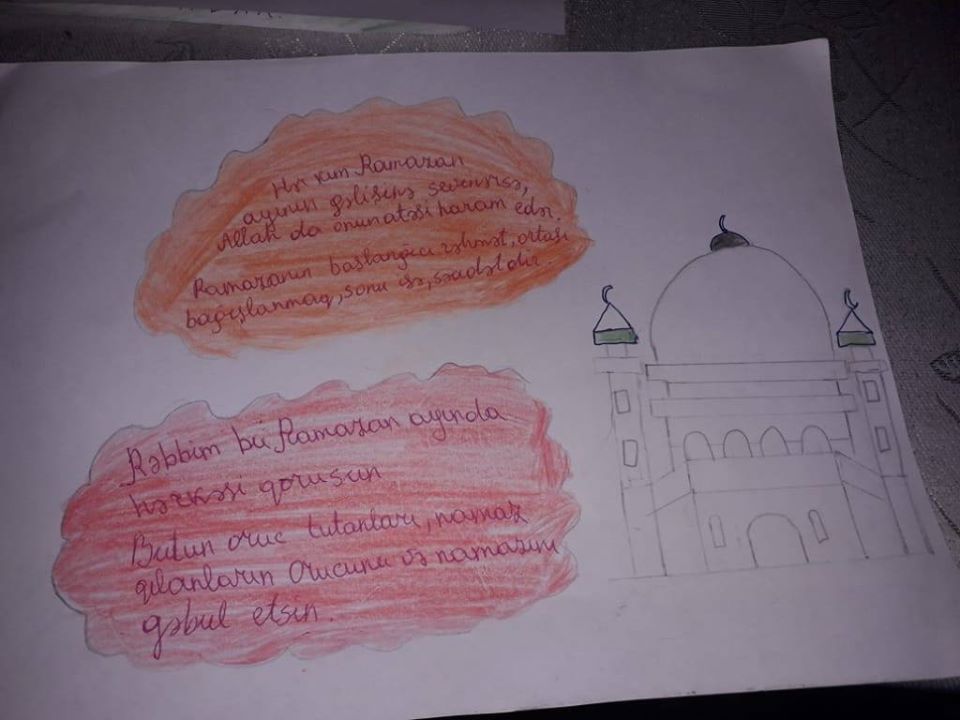 Hər kim Ramazan
ayının gəlişinə sevinərsə,
Allah da onun atəşi haram edər.
Ramazanın başlanğıcı rəhmət, ortası
bağışlanmaq, sonu isə, səadətdir.
Rəbbim bu Ramazan ayında
hərkəsi qorusun
Butun oruc tutanları, namaz
qılanların Orucunu və namazını
qəbul etsin.